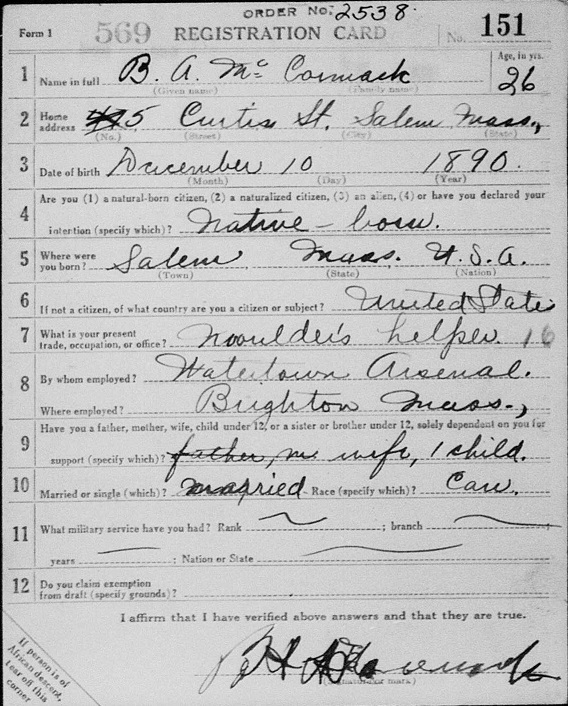 ORDER No. 2538
Form 1 569 REGISTRATION CARD No. 151
1 Name in full B. A. Mc Cormack Age, in yrs. 26
(Given name) (Family name)
2 Home address 5 Curtis St. Salem Mass.,
(No.) (Street) (City) (State)
3 Date of birth December 10 1890.
(Month) (Day) (Year)
4 Are you (1) a natural-born citizen, (2) a naturalized citizen, (3) an alien, (4) or have you declared your
intention (specify which)? Native - born.
5 Where were you born? Salem Mass. U.S.A.
(Town) (State) (Nation)
6 If not a citizen, of what country are you a citizen or subject? United States
7 What is your present trade, occupation, or office? Moulder's helper. 16
8 By whom employed? Watertown Arsenal.
Where employed? Brighton Mass.,
9 Have you a father, mother, wife, child under 12, or a sister or brother under 12, solely dependent on you for
support (specify which)? father, wife, 1 child.
10 Married or single (which)? married Race (specify which)? Cau.
11 What military service have you had? Rank ; branch
years ; Nation or State
12 Do you claim exemption from draft (specify grounds)?
I affirm that I have verified above answers and that they are true.
(Signature or mark)
If person is of African descent, tear off this corner